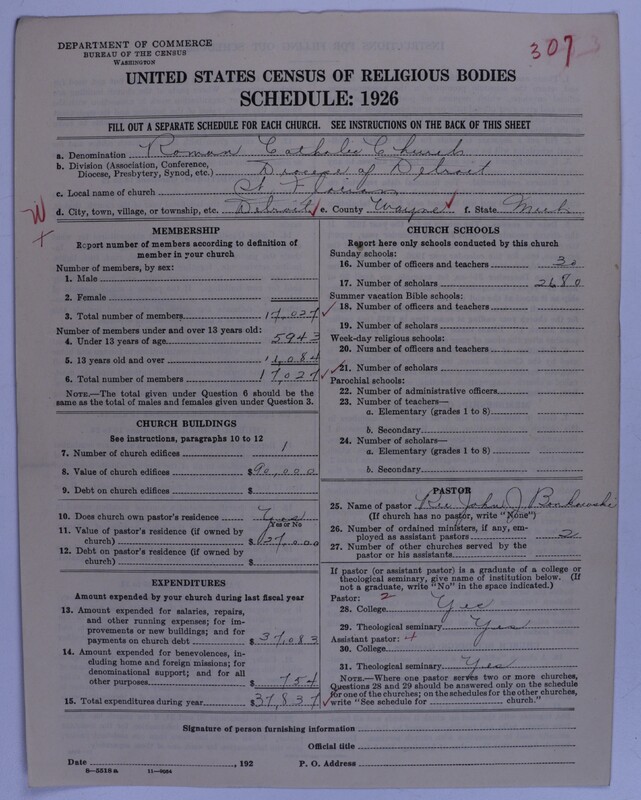 DEPARTMENT OF COMMERCE
BUREAU OF THE CENSUS
WASHINGTON
307
UNITED STATES CENSUS OF RELIGIOUS BODIES
SCHEDULE: 1926
FILL OUT A SEPARATE SCHEDULE FOR EACH CHURCH. SEE INSTRUCTIONS ON THE BACK OF THIS SHEET
a. Denomination Roman Catholic Church
b. Division (Association, Conference, Diocese, Presbytery, Synod, etc.) Diocese of Detroit
c. Local name of church St Florian
d. City, town, village, or township, etc. Detroit e. County Wayne f. State Mich
W
MEMBERSHIP
Report number of members according to definition of member in your church
Number of members, by sex:
1. Male
2. Female
3. Total number of members 17,027
Number of members under and over 13 years old:
4. Under 13 years of age 5943
5. 13 years old and over 11,084
6. Total number of members 17,027
NOTE.—The total given under Question 6 should be the same as the total of males and females given under Question 3.
CHURCH BUILDINGS
See instructions, paragraphs 10 to 12
7. Number of church edifices 1
8. Value of church edifices $90,000
9. Debt on church edifices $
10. Does church own pastor's residence Yes
Yes or No
11. Value of pastor's residence (if owned by church) $27,000
12. Debt on pastor's residence (if owned by church) $
EXPENDITURES
Amount expended by your church during last fiscal year
13. Amount expended for salaries, repairs, and other running expenses; for improvements or new buildings; and for payments on church debt $37,083
14. Amount expended for benevolences, including home and foreign missions; for denominational support; and for all other purposes $754
15. Total expenditures during year $37,837
CHURCH SCHOOLS
Report here only schools conducted by this church
Sunday schools:
16. Number of officers and teachers 30
17. Number of scholars 2680
Summer vacation Bible schools:
18. Number of officers and teachers
19. Number of scholars
Week-day religious schools:
20. Number of officers and teachers
21. Number of scholars
Parochial schools:
22. Number of administrative officers
23. Number of teachers—
a. Elementary (grades 1 to 8)
b. Secondary
24. Number of scholars—
a. Elementary (grades 1 to 8)
b. Secondary
PASTOR
25. Name of pastor Rev John J Bonkowski
(If church has no pastor, write "None")
26. Number of ordained ministers, if any, employed as assistant pastors 2
27. Number of other churches served by the pastor or his assistants
If pastor (or assistant pastor) is a graduate of a college or theological seminary, give name of institution below. (If not a graduate, write "No" in the space indicated.)
Pastor: 2
28. College Yes
29. Theological seminary Yes
Assistant pastor: 4
30. College
31. Theological seminary Yes
NOTE.—Where one pastor serves two or more churches, Questions 28 and 29 should be answered only on the schedule for one of the churches; on the schedules for the other churches, write "See schedule for church."
Signature of person furnishing information
Official title
Date , 192 P. O. Address
8—5518a 11—9064